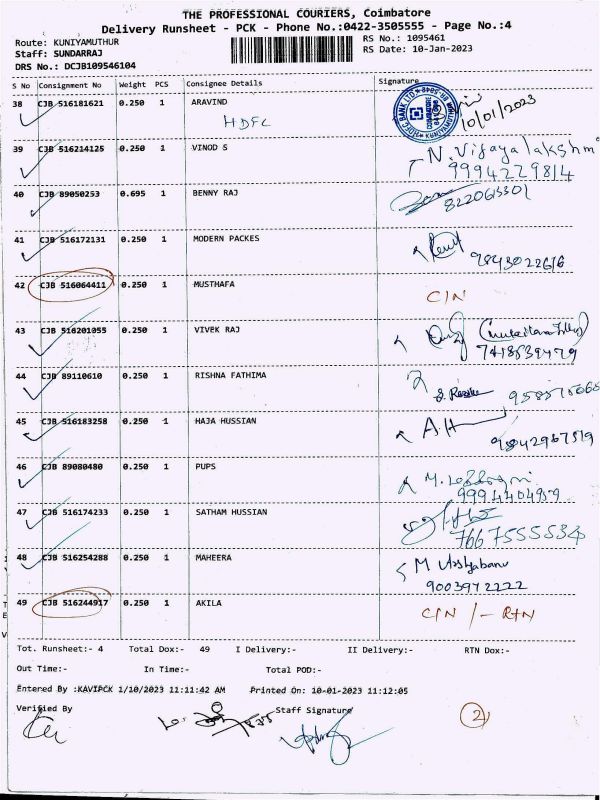 THE PROFESSIONAL COURIERS, Coimbatore
Delivery Runsheet - PCK - Phone No.:0422-3505555 - Page No.:4
Route: KUNIYAMUTHUR
RS No.: 1095461
Staff: SUNDARRAJ
RS Date: 10-Jan-2023
DRS No.: DCJB109546104
S No Consignment No Weight PCS Consignee Details Signature
38 CJB 516181621 0.250 1 ARAVIND
HDFC 10/01/2023
39 CJB 516214125 0.250 1 VINOD S N. Vijayalakshmi
9994229814
40 CJB 89050253 0.695 1 BENNY RAJ
822065301
41 CJB 516172131 0.250 1 MODERN PACKES
9843022616
42 CJB 516064411 0.250 1 MUSTHAFA
C/N
43 CJB 516201055 0.250 1 VIVEK RAJ
7418539479
44 CJB 89110610 0.250 1 RISHNA FATHIMA
45 CJB 516183258 0.250 1 HAJA HUSSIAN AH
9842967519
46 CJB 89080480 0.250 1 PUPS
9994404959
47 CJB 516174233 0.250 1 SATHAM HUSSIAN
7667555534
48 CJB 516254288 0.250 1 MAHEERA
9003972222
49 CJB 516244917 0.250 1 AKILA
C/N /- RTN
Tot. Runsheet:- 4 Total Dox:- 49 I Delivery:- II Delivery:- RTN Dox:-
Out Time:- In Time:- Total POD:-
Entered By :KAVIPCK 1/10/2023 11:11:42 AM Printed On: 10-01-2023 11:12:05
Verified By Staff Signature
2